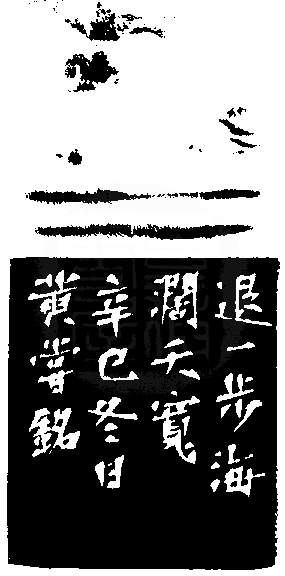 退一步海
濶天寬
辛巳冬日
黄嘗銘